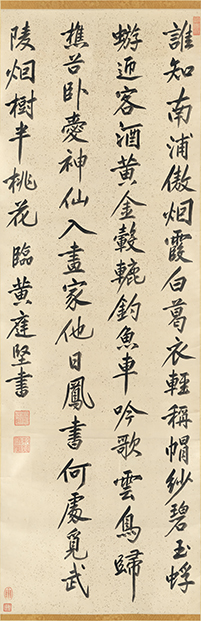 誰知南浦傲烟霞白葛衣輕稱帽紗碧玉蜉
蝣近客酒黃金轂轆釣魚車吟歌雲鳥歸
樵谷臥愛神仙入畫家他日鳳書何處覓武
陵烟樹半桃花 臨黃庭堅書